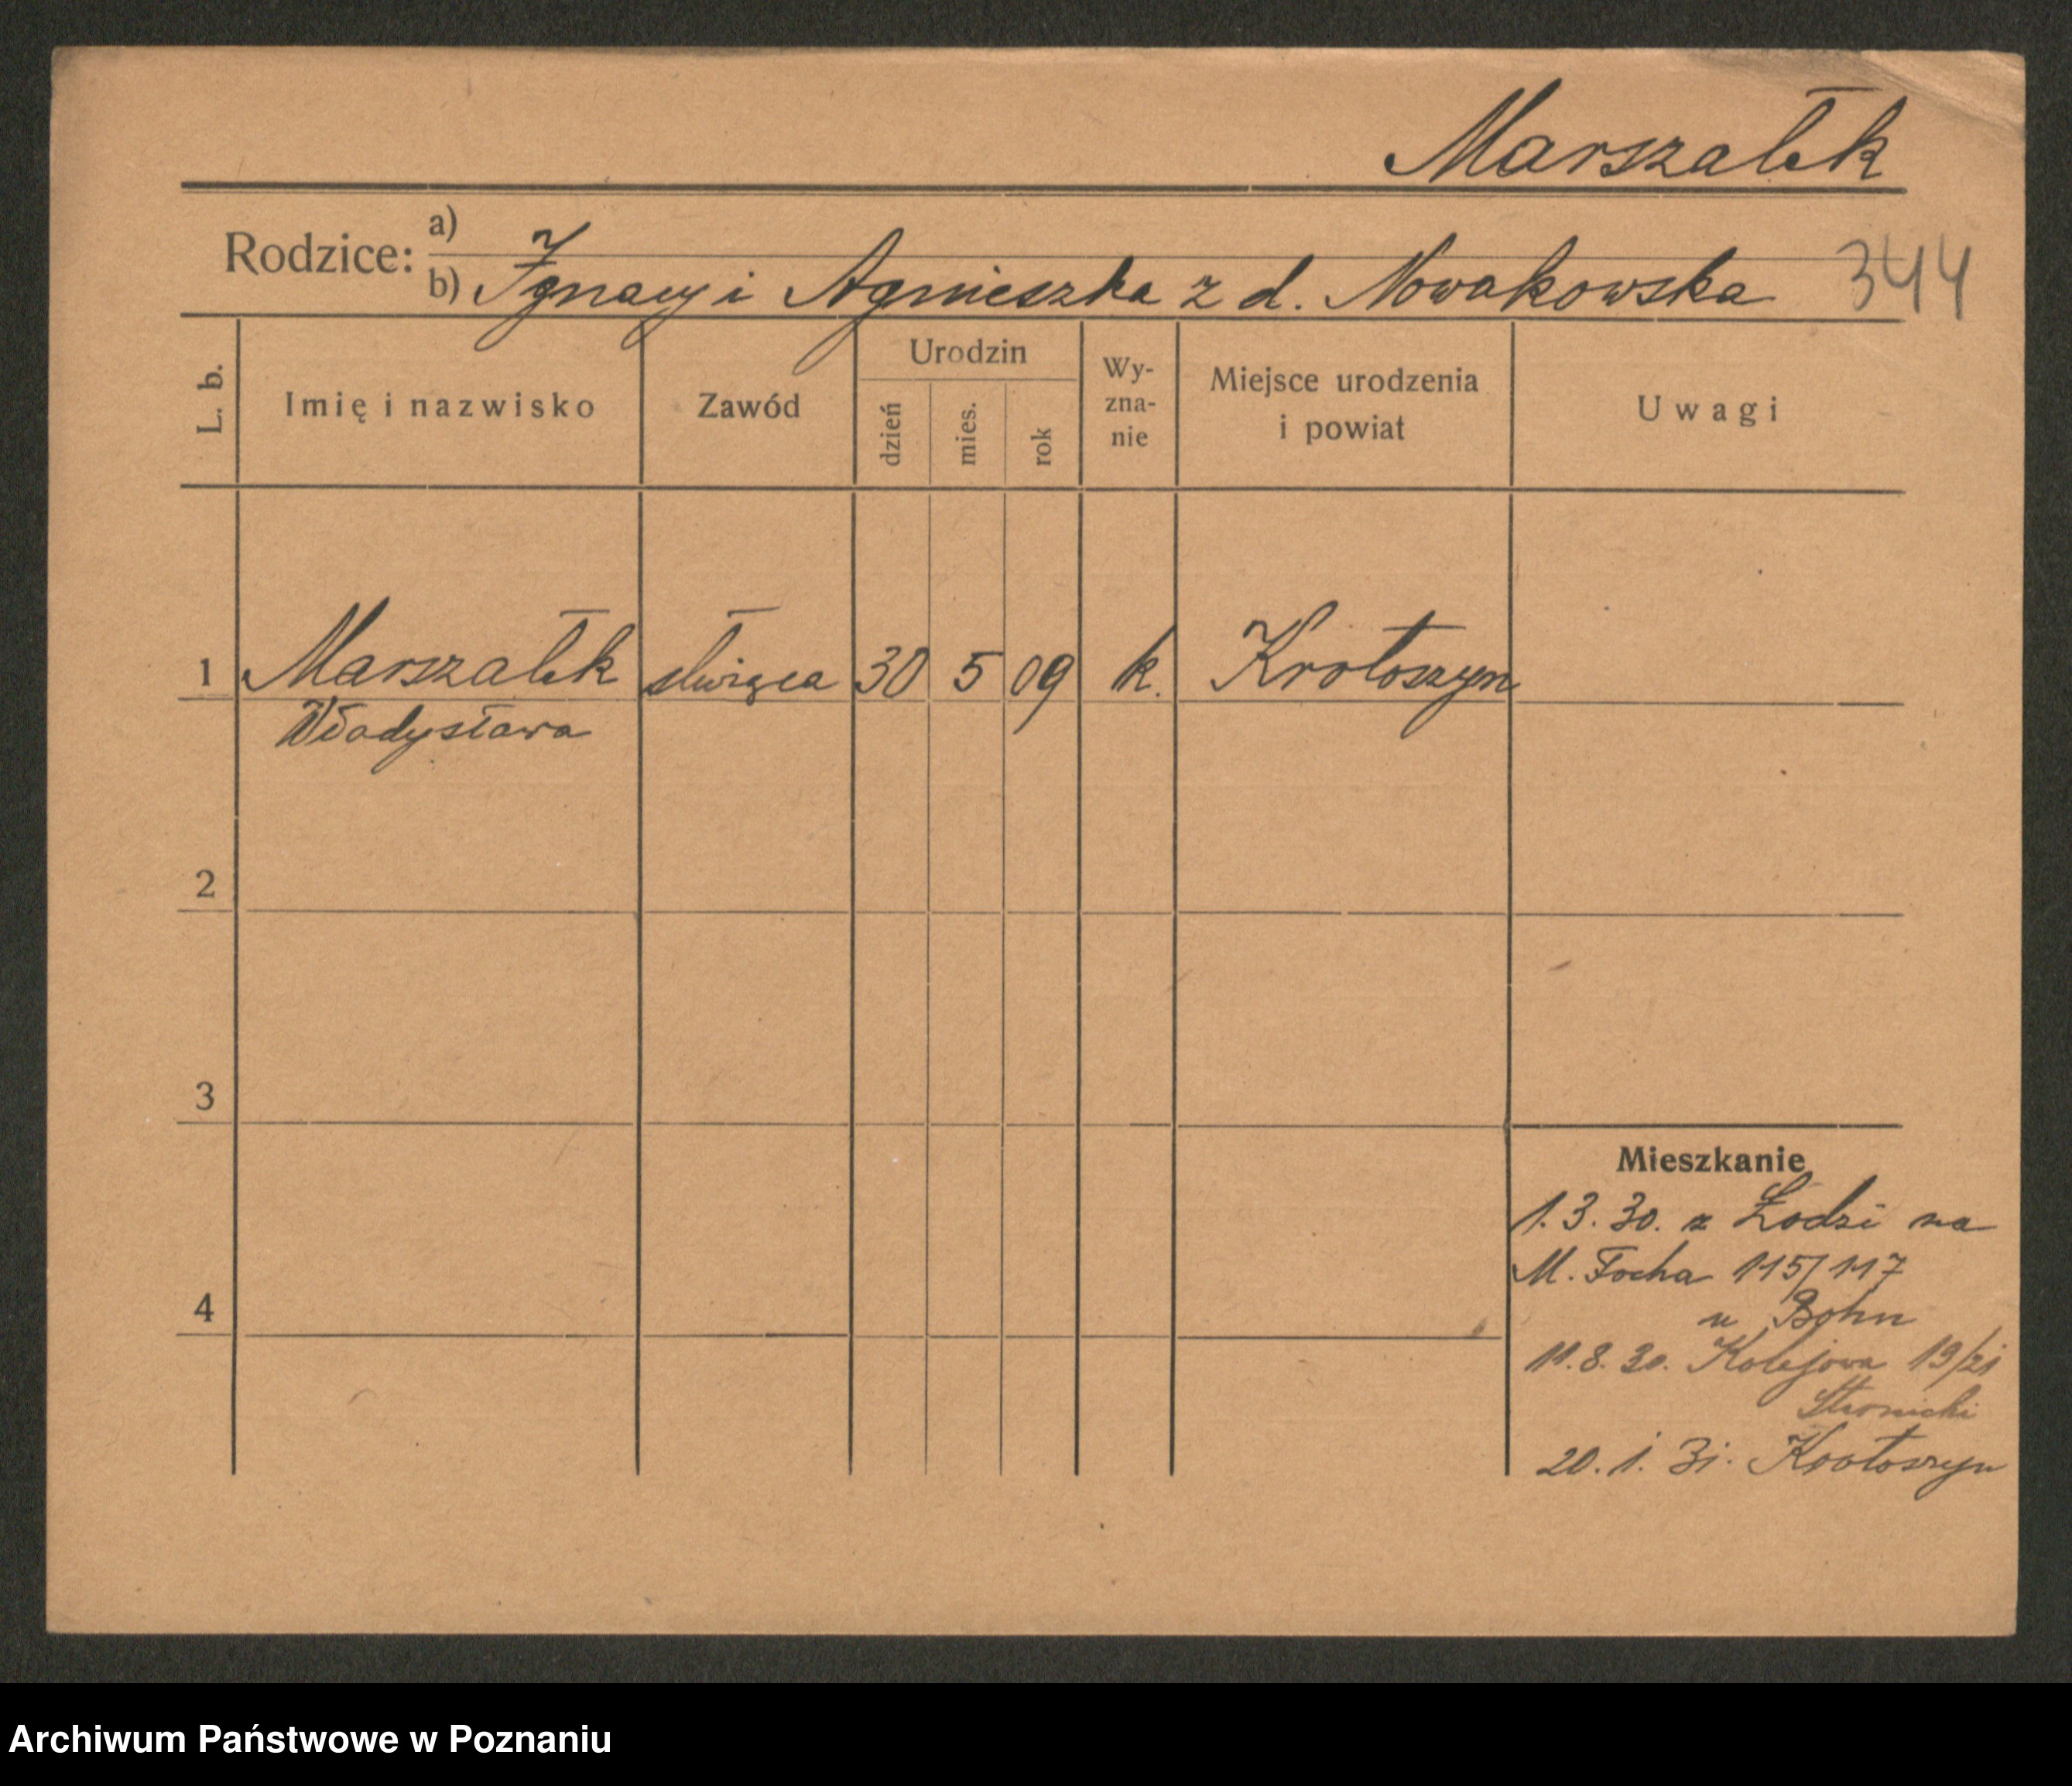 Marszałek
Rodzice:
a)
b) Ignacy i Agnieszka z d. Nowakowska
344
L. b.
Imię i nazwisko
Zawód
Urodzin
dzień
mies.
rok
Wy-
zna-
nie
Miejsce urodzenia
i powiat
Uwagi
1 Marszałek służąca 30 5 09 k. Krotoszyn
Władysława
2
3
4
Mieszkanie
1. 3. 30. z Łodzi na
M. Focha 115/117
u Bohn
11. 8. 30. Kolejowa 19/21
20. 1. 31. Krotoszyn
Archiwum Państwowe w Poznaniu